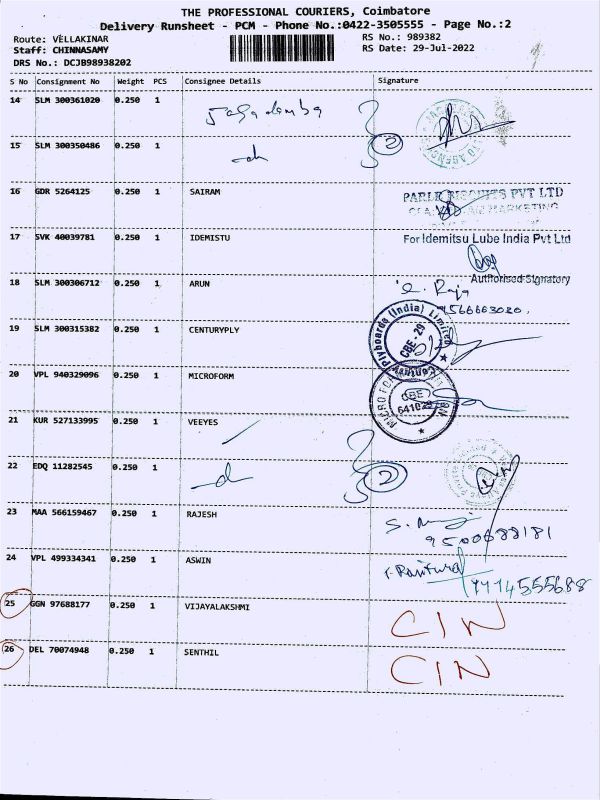 THE PROFESSIONAL COURIERS, Coimbatore
Delivery Runsheet - PCM - Phone No.:0422-3505555 - Page No.:2
Route: VELLAKINAR
RS No.: 989382
Staff: CHINNASAMY
RS Date: 29-Jul-2022
DRS No.: DCJB98938202
S No Consignment No Weight PCS Consignee Details Signature
14 SLM 300361020 0.250 1
15 SLM 300350486 0.250 1 2
16 GDR 5264125 0.250 1 SAIRAM
PARLE BISCUITS PVT LTD
17 SVK 40039781 0.250 1 IDEMISTU For Idemitsu Lube India Pvt Ltd
Authorised Signatory
18 SLM 300306712 0.250 1 ARUN
Raja
9566663020.
19 SLM 300315382 0.250 1 CENTURYPLY
Century Plyboards (India) Limited
CBE - 29
20 VPL 940329096 0.250 1 MICROFORM
CBE
21 KUR 527133995 0.250 1 VEEYES
22 EDQ 11282545 0.250 1 2
23 MAA 566159467 0.250 1 RAJESH
9500688181
24 VPL 499334341 0.250 1 ASWIN
25 GGN 97688177 0.250 1 VIJAYALAKSHMI CIN
26 DEL 70074948 0.250 1 SENTHIL CIN